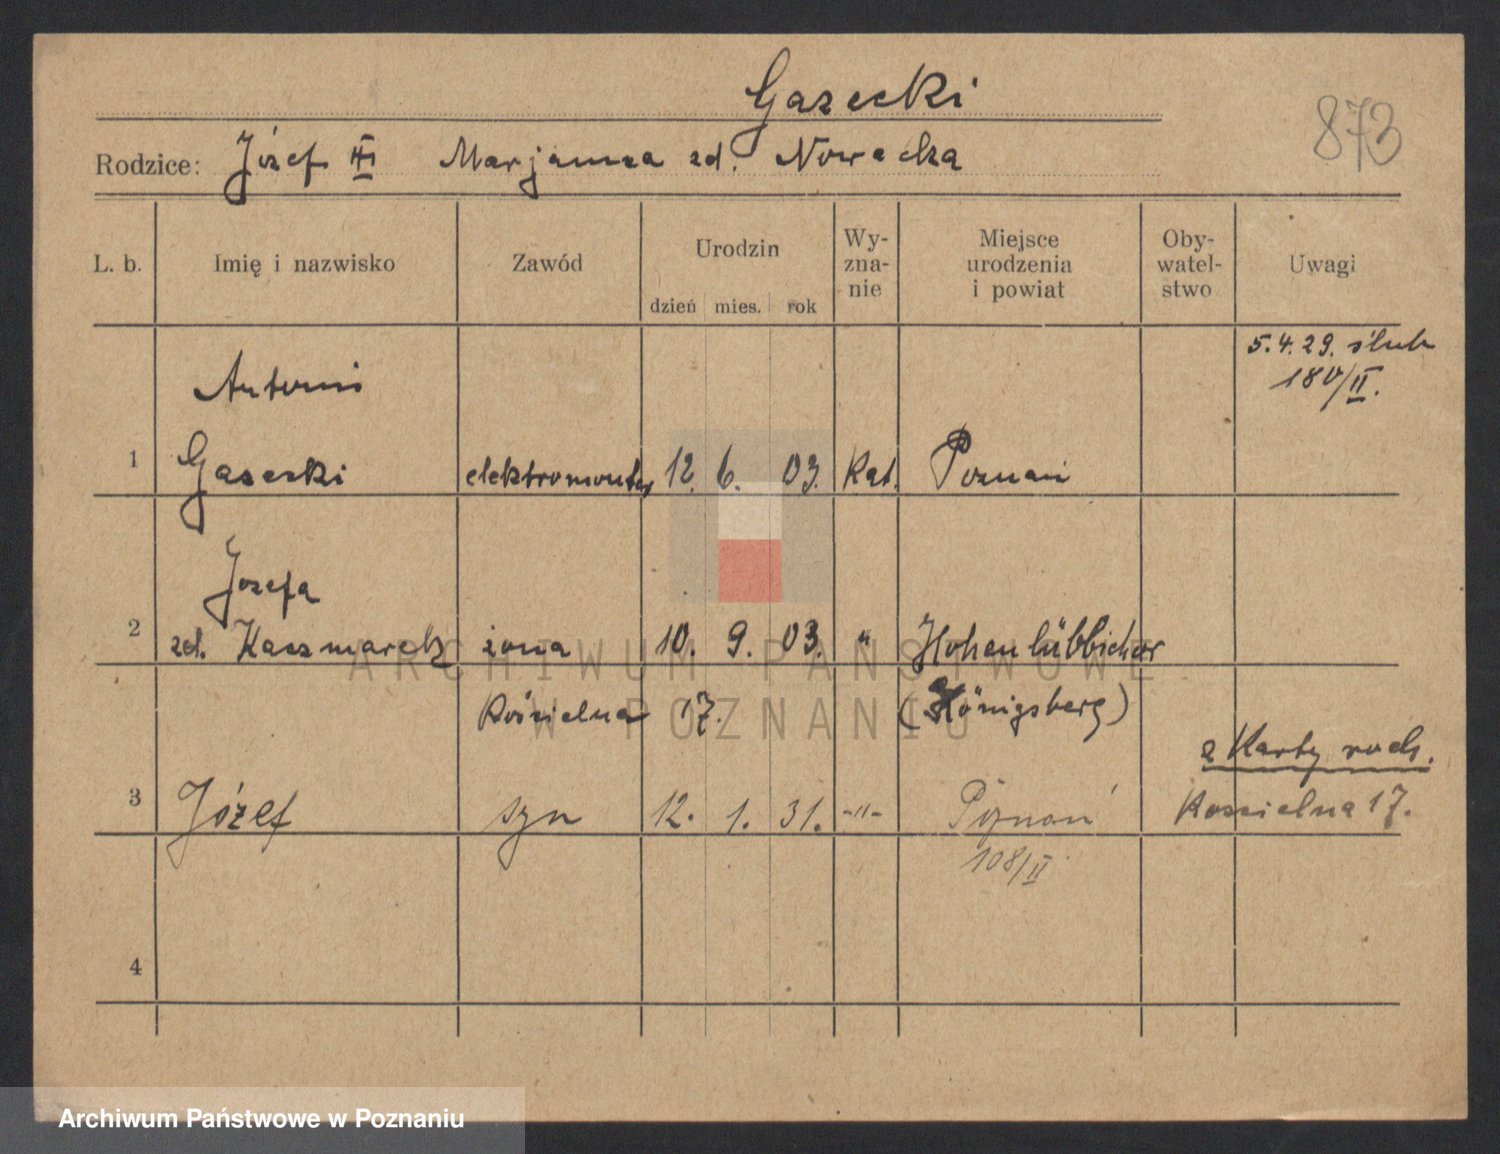 Gasecki
873
Rodzice: Józef Marjanna zd. Nowacka
L. b. Imię i nazwisko Zawód Urodzin dzień mies. rok Wy-zna-nie Miejsce urodzenia i powiat Oby-watel-stwo Uwagi
5.4.29. ślub
180/II.
Antoni
1 Gasecki elektromonter 12. 6. 03. Kat. Poznań
Józefa
2 zd. Kaczmarek żona 10. 9. 03. " Hohenlübbichow
Kościelna 17. (Königsberg)
z Karty
3 Józef syn 12. 1. 31. -"- Poznań Kościelna 17.
108/II
4
ARCHIWUM PAŃSTWOWE
W POZNANIU
Archiwum Państwowe w Poznaniu